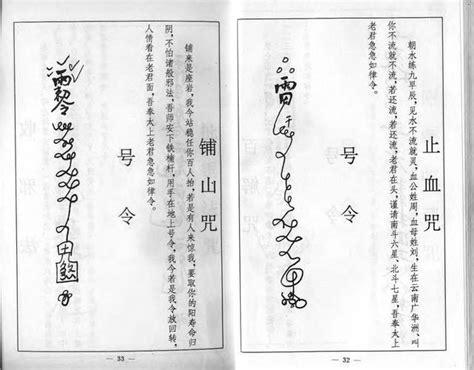 止血咒
朝水练九早辰，见水不流就灵，血公姓周，血母姓刘，生在云南广华洲、叫
你不流就不流，若还流，若还流，老君在头，谨请南斗六星、北斗七星，吾奉太上
老君急急如律令。
号令
— 32 —
铺山咒
铺来是座岩，我今站稳任你百人抬，若是有人来惊我，要取你的阳寿命归
阴，不怕诸般邪法，吾师安下铁楠杆，用手在地上号令，我今若是我令放回转，
人情看在老君面，吾奉太上老君急急如律令。
号令
— 33 —